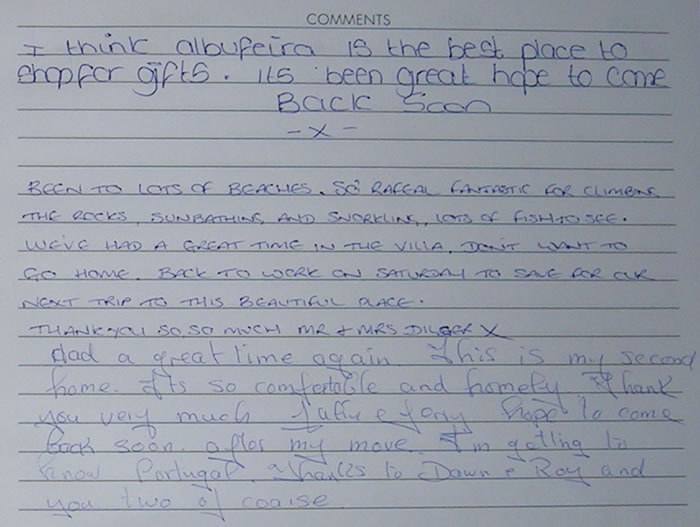 COMMENTS
I think albufeira is the best place to
shop for gifts. its been great hope to come
Back Soon
- x -
BEEN TO LOTS OF BEACHES. SO RAFEAL FANTASTIC FOR CLIMBING
THE ROCKS, SUNBATHING AND SNORKLING, LOTS OF FISH TO SEE.
WE'VE HAD A GREAT TIME IN THE VILLA, DON'T WANT TO
GO HOME. BACK TO WORK ON SATURDAY TO SAVE FOR OUR
NEXT TRIP TO THIS BEAUTIFUL PLACE.
THANKYOU SO, SO MUCH MR & MRS X
Had a great time again. This is my second
home. It's so comfertable and homely Thank
you very much & hope to come
back soon. after my move. I'm getting to
know Portugal. Thanks to Dawn & Roy and
you two of coaise.